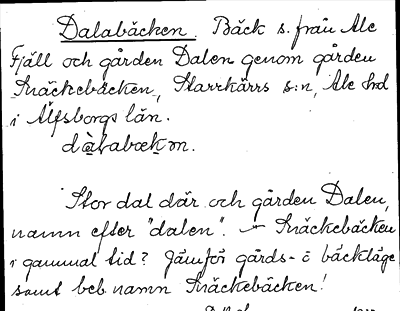 Dalabäcken. Bäck s. från Ale
Fjäll och gården Dalen genom gården
Snäckebäcken, Starrkärrs s:n, Ale hd
i Älfsborgs län.
dàlabækɔn.
Stor dal där och gården Dalen,
namn efter "dalen". – Snäckebäcken
i gammal tid? Jämför gårds- o bäckläge
samt beb. namn Snäckebäcken!